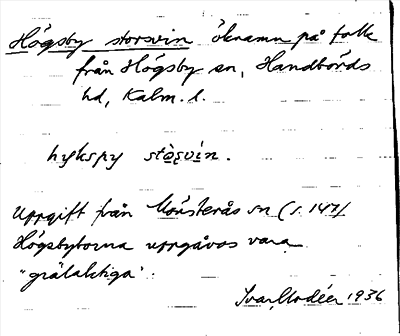 Högsby storsvin öknamn på folk
från Högsby sn, Handbörds
hd, Kalm. l.
hykspy stòsvin.
Uppgift från Mönsterås sn (s. 147)
Högsbyborna uppgåvos vara
"grälaktiga".
Ivar Modéer 1936